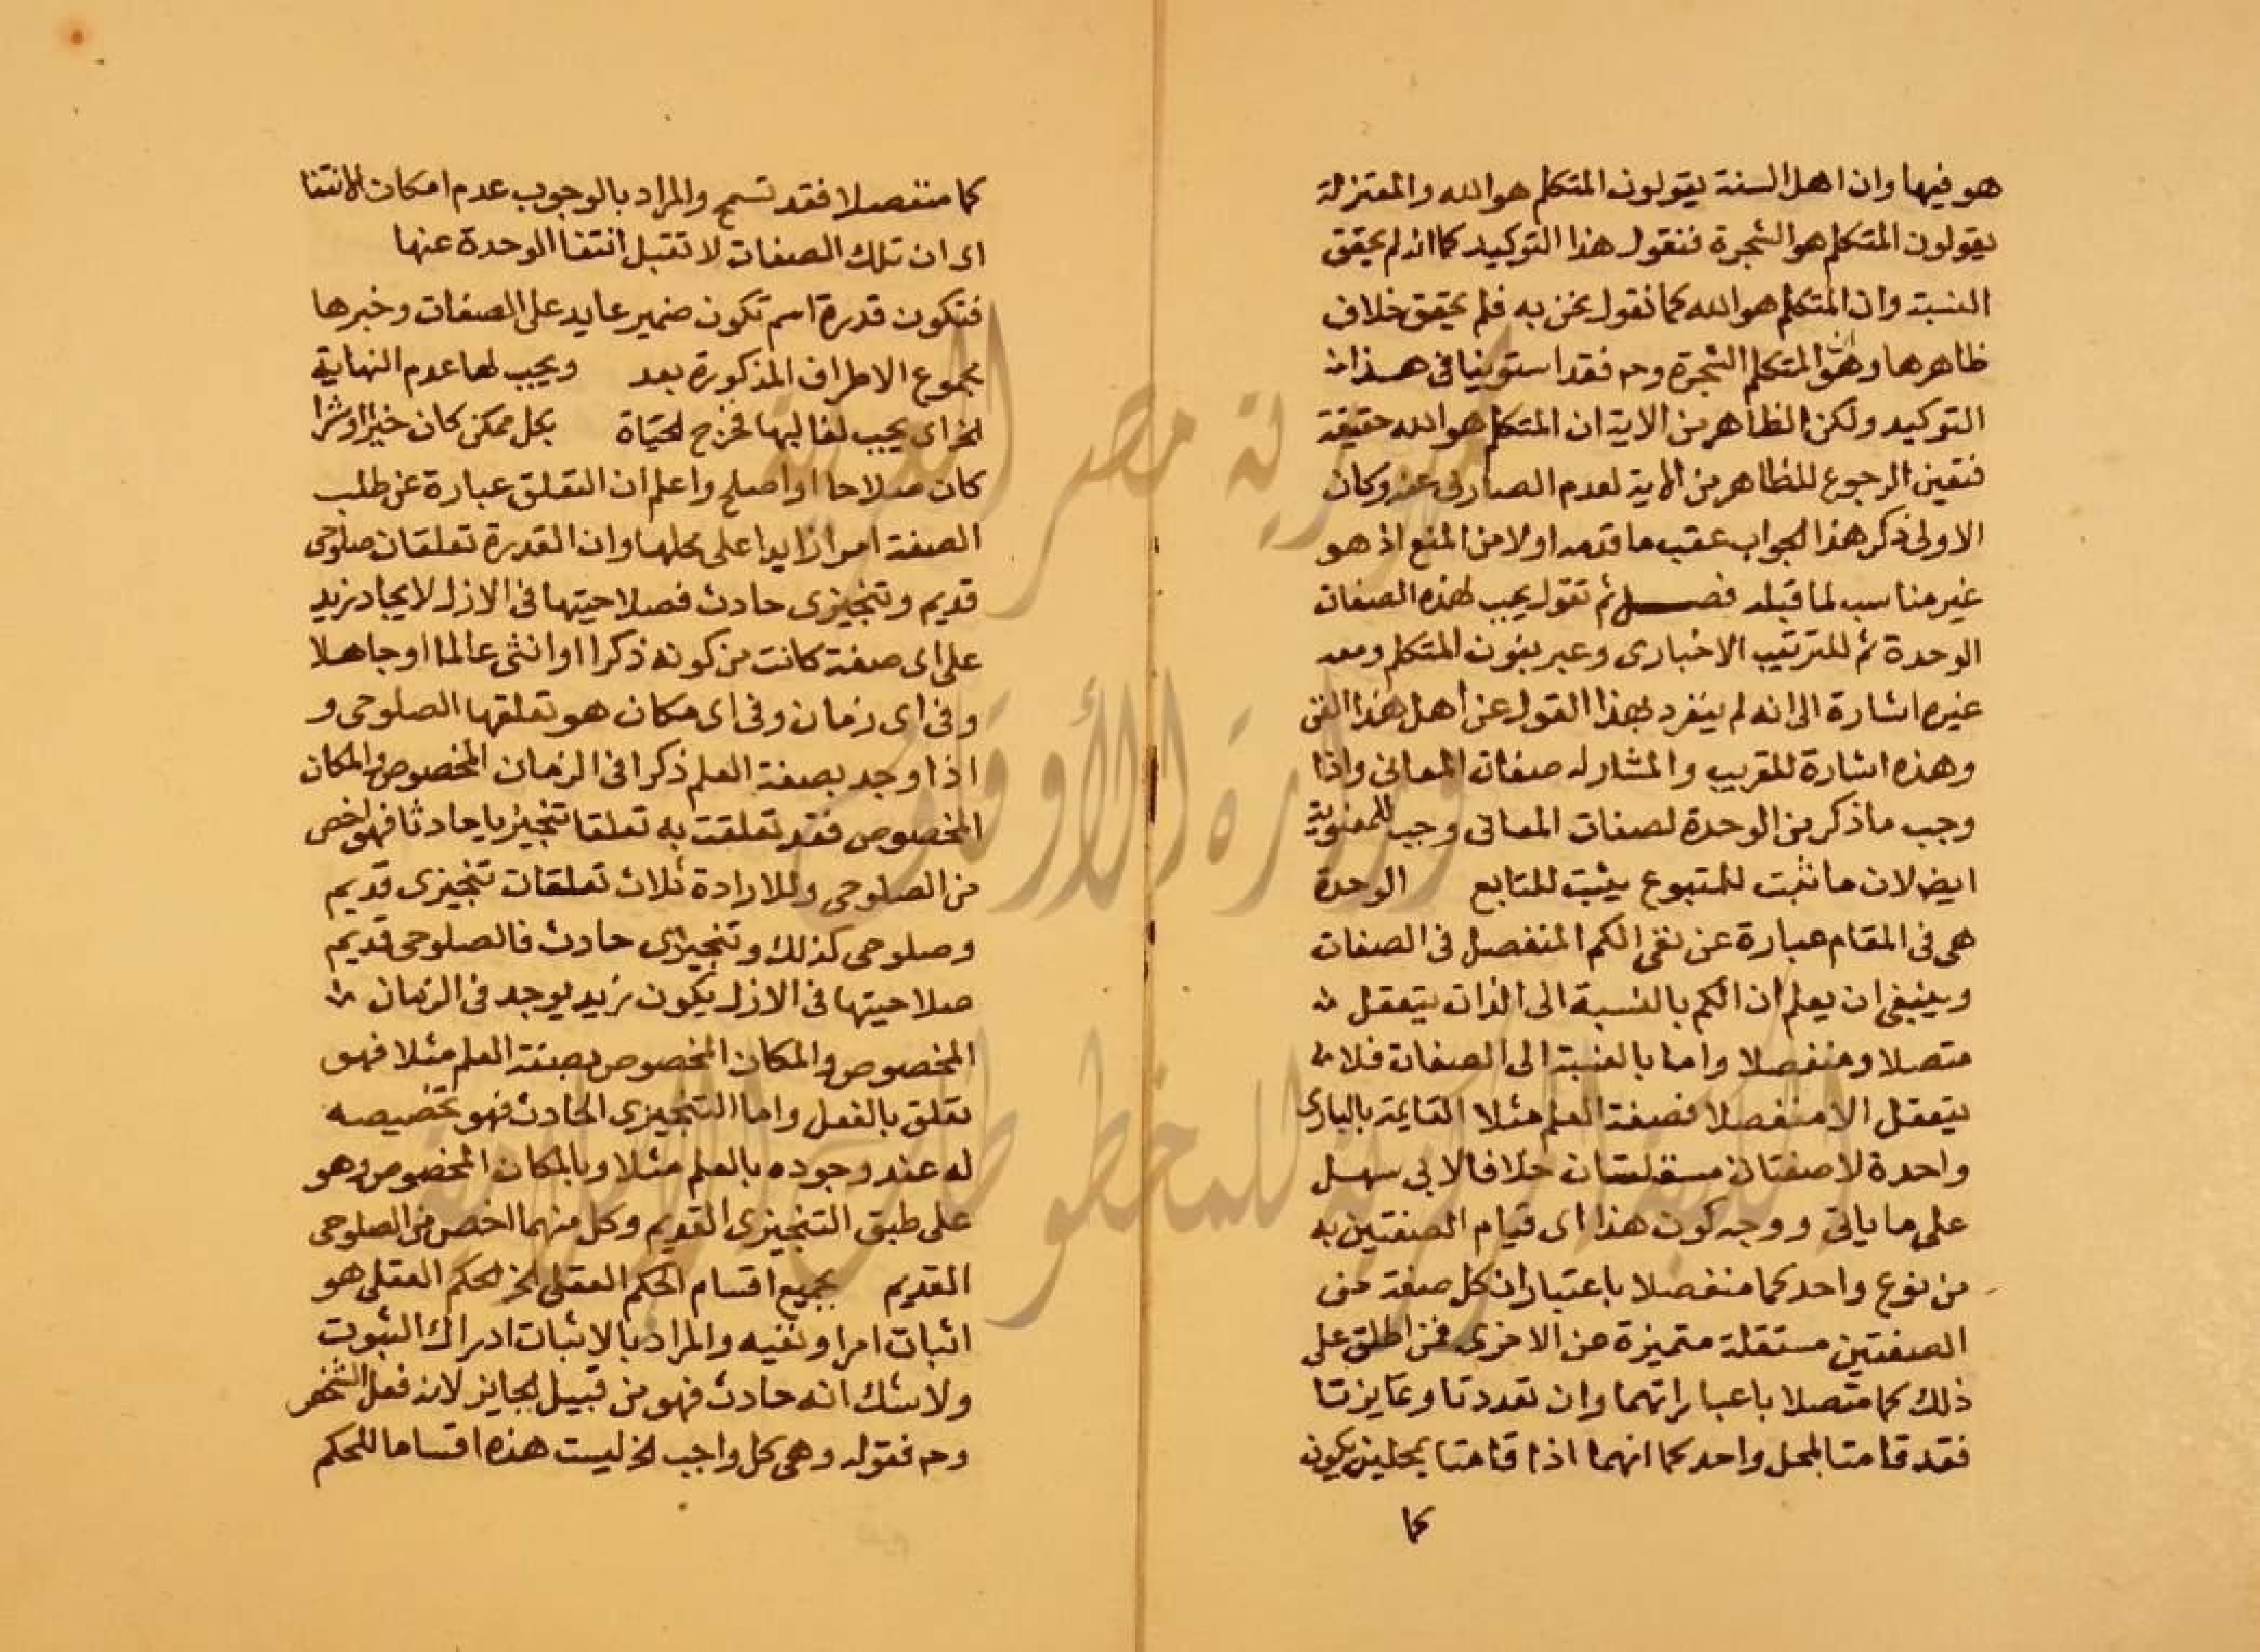 هو فيها وان اهل السنة يقولون المتكلم هو الله والمعتزلة
يقولون المتكلم هو الشجرة فنقول هذا التوكيد كما انه لم يحقق
النسبة وان المتكلم هو الله كما نقول نحن به فلم يحقق خلاف
ظاهرها وهو ان المتكلم الشجرة وح فقد استوينا في هذا
التوكيد ولكن الظاهر من الاية ان المتكلم هو الله حقيقة
فتعين الرجوع للظاهر من الاية لعدم الصارف عنه وكان
الاولى ذكر هذا الجواب عقب ما قدمه اولا من المنع اذ هو
غير مناسب لما قبله فصل ثم تقول يجب لهذه الصفات
الوحدة ثم للترتيب الاخبارى وعبر بنون المتكلم ومعه
غيره اشارة الى انه لم ينفرد بهذا القول عن اهل هذا الفن
وهذه اشارة للقريب والمشار له صفات المعاني واذا
وجب ما ذكر من الوحدة لصفات المعاني وجب للمعنوية
ايض لان ما ثبت للمتبوع يثبت للتابع الوحدة
هي في المقام عبارة عن نفي الكم المنفصل في الصفات
وينبغي ان يعلم ان الكم بالنسبة الى الذات يتعقل
متصلا ومنفصلا واما بالنسبة الى الصفات فلا
يتعقل الا منفصلا فصفة العلم مثلا القايمة بالبارى
واحدة لا صفتان مستقلتان خلافا لابي سهل
على ما ياتي ووجه كون هذا اى قيام الصفتين به
من نوع واحد كما منفصلا باعتبار ان كل صفة من
الصفتين مستقلة متميزة عن الاخرى فمن اطلق على
ذلك كما متصلا باعبار انهما وان تعددتا وتمايزتا
فقد قامتا بمحل واحد كما انهما اذا قامتا بمحلين يكون
كما
كما منفصلا فقد تسمح والمراد بالوجوب عدم امكان الانتفا
اى ان تلك الصفات لا تقبل انتفا الوحدة عنها
فتكون قدرة اسم تكون ضمير عايد على الصفات وخبرها
مجموع الاطراف المذكورة بعد ويجب لها عدم النهاية
الخ اى يجب لغالبها فخرج الحياة بكل ممكن كان خيرا او شرا
كان صلاحا او اصلح واعلم ان التعلق عبارة عن طلب
الصفة امرا زايدا على محلها وان القدرة تعلقان صلوحي
قديم وتنجيزى حادث فصلاحيتها في الازل لايجاد زيد
على اى صفة كانت من كونه ذكرا او انثى عالما او جاهلا
وفي اى زمان وفي اى مكان هو تعلقها الصلوحي و
اذا وجد بصفة العلم ذكرا في الزمان المخصوص والمكان
المخصوص فقد تعلقت به تعلقا تنجيزيا حادثا فهو اخص
من الصلوحي وللارادة ثلاث تعلقات تنجيزى قديم
وصلوحي كذلك وتنجيزى حادث فالصلوحي قديم
صلاحيتها في الازل يكون زيد يوجد في الزمان
المخصوص والمكان المخصوص بصفة العلم مثلا فهو
تعلق بالفعل واما التنجيزى الحادث فهو تخصيصه
له عند وجوده بالعلم مثلا وبالمكان المخصوص وهو
على طبق التنجيزى القديم وكل منهما اخص من الصلوحي
القديم بجميع اقسام الحكم العقلي الخ الحكم العقلي هو
اثبات امر او نفيه والمراد بالاثبات ادراك الثبوت
ولا شك انه حادث فهو من قبيل الجايز لانه فعل الشخص
وح فقوله وهي كل واجب الخ ليست هذه اقساما للحكم